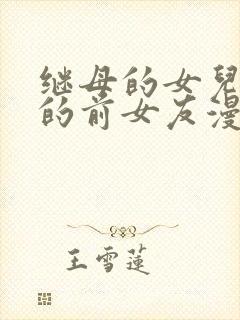 继母的女兒
的前女友漫
王雪蓮